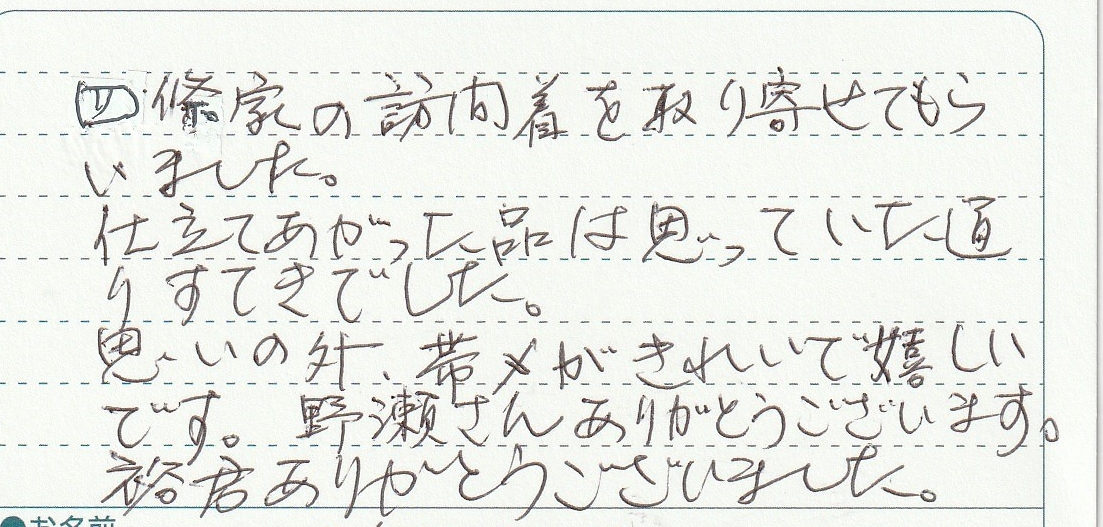 四條家の訪問着を取り寄せてもら
いました。
仕立てあがった品は思っていた通
りすてきでした。
思いの外、帯〆がきれいで嬉しい
です。野瀬さんありがとうございます。
裕君ありがとうございました。
●お名前